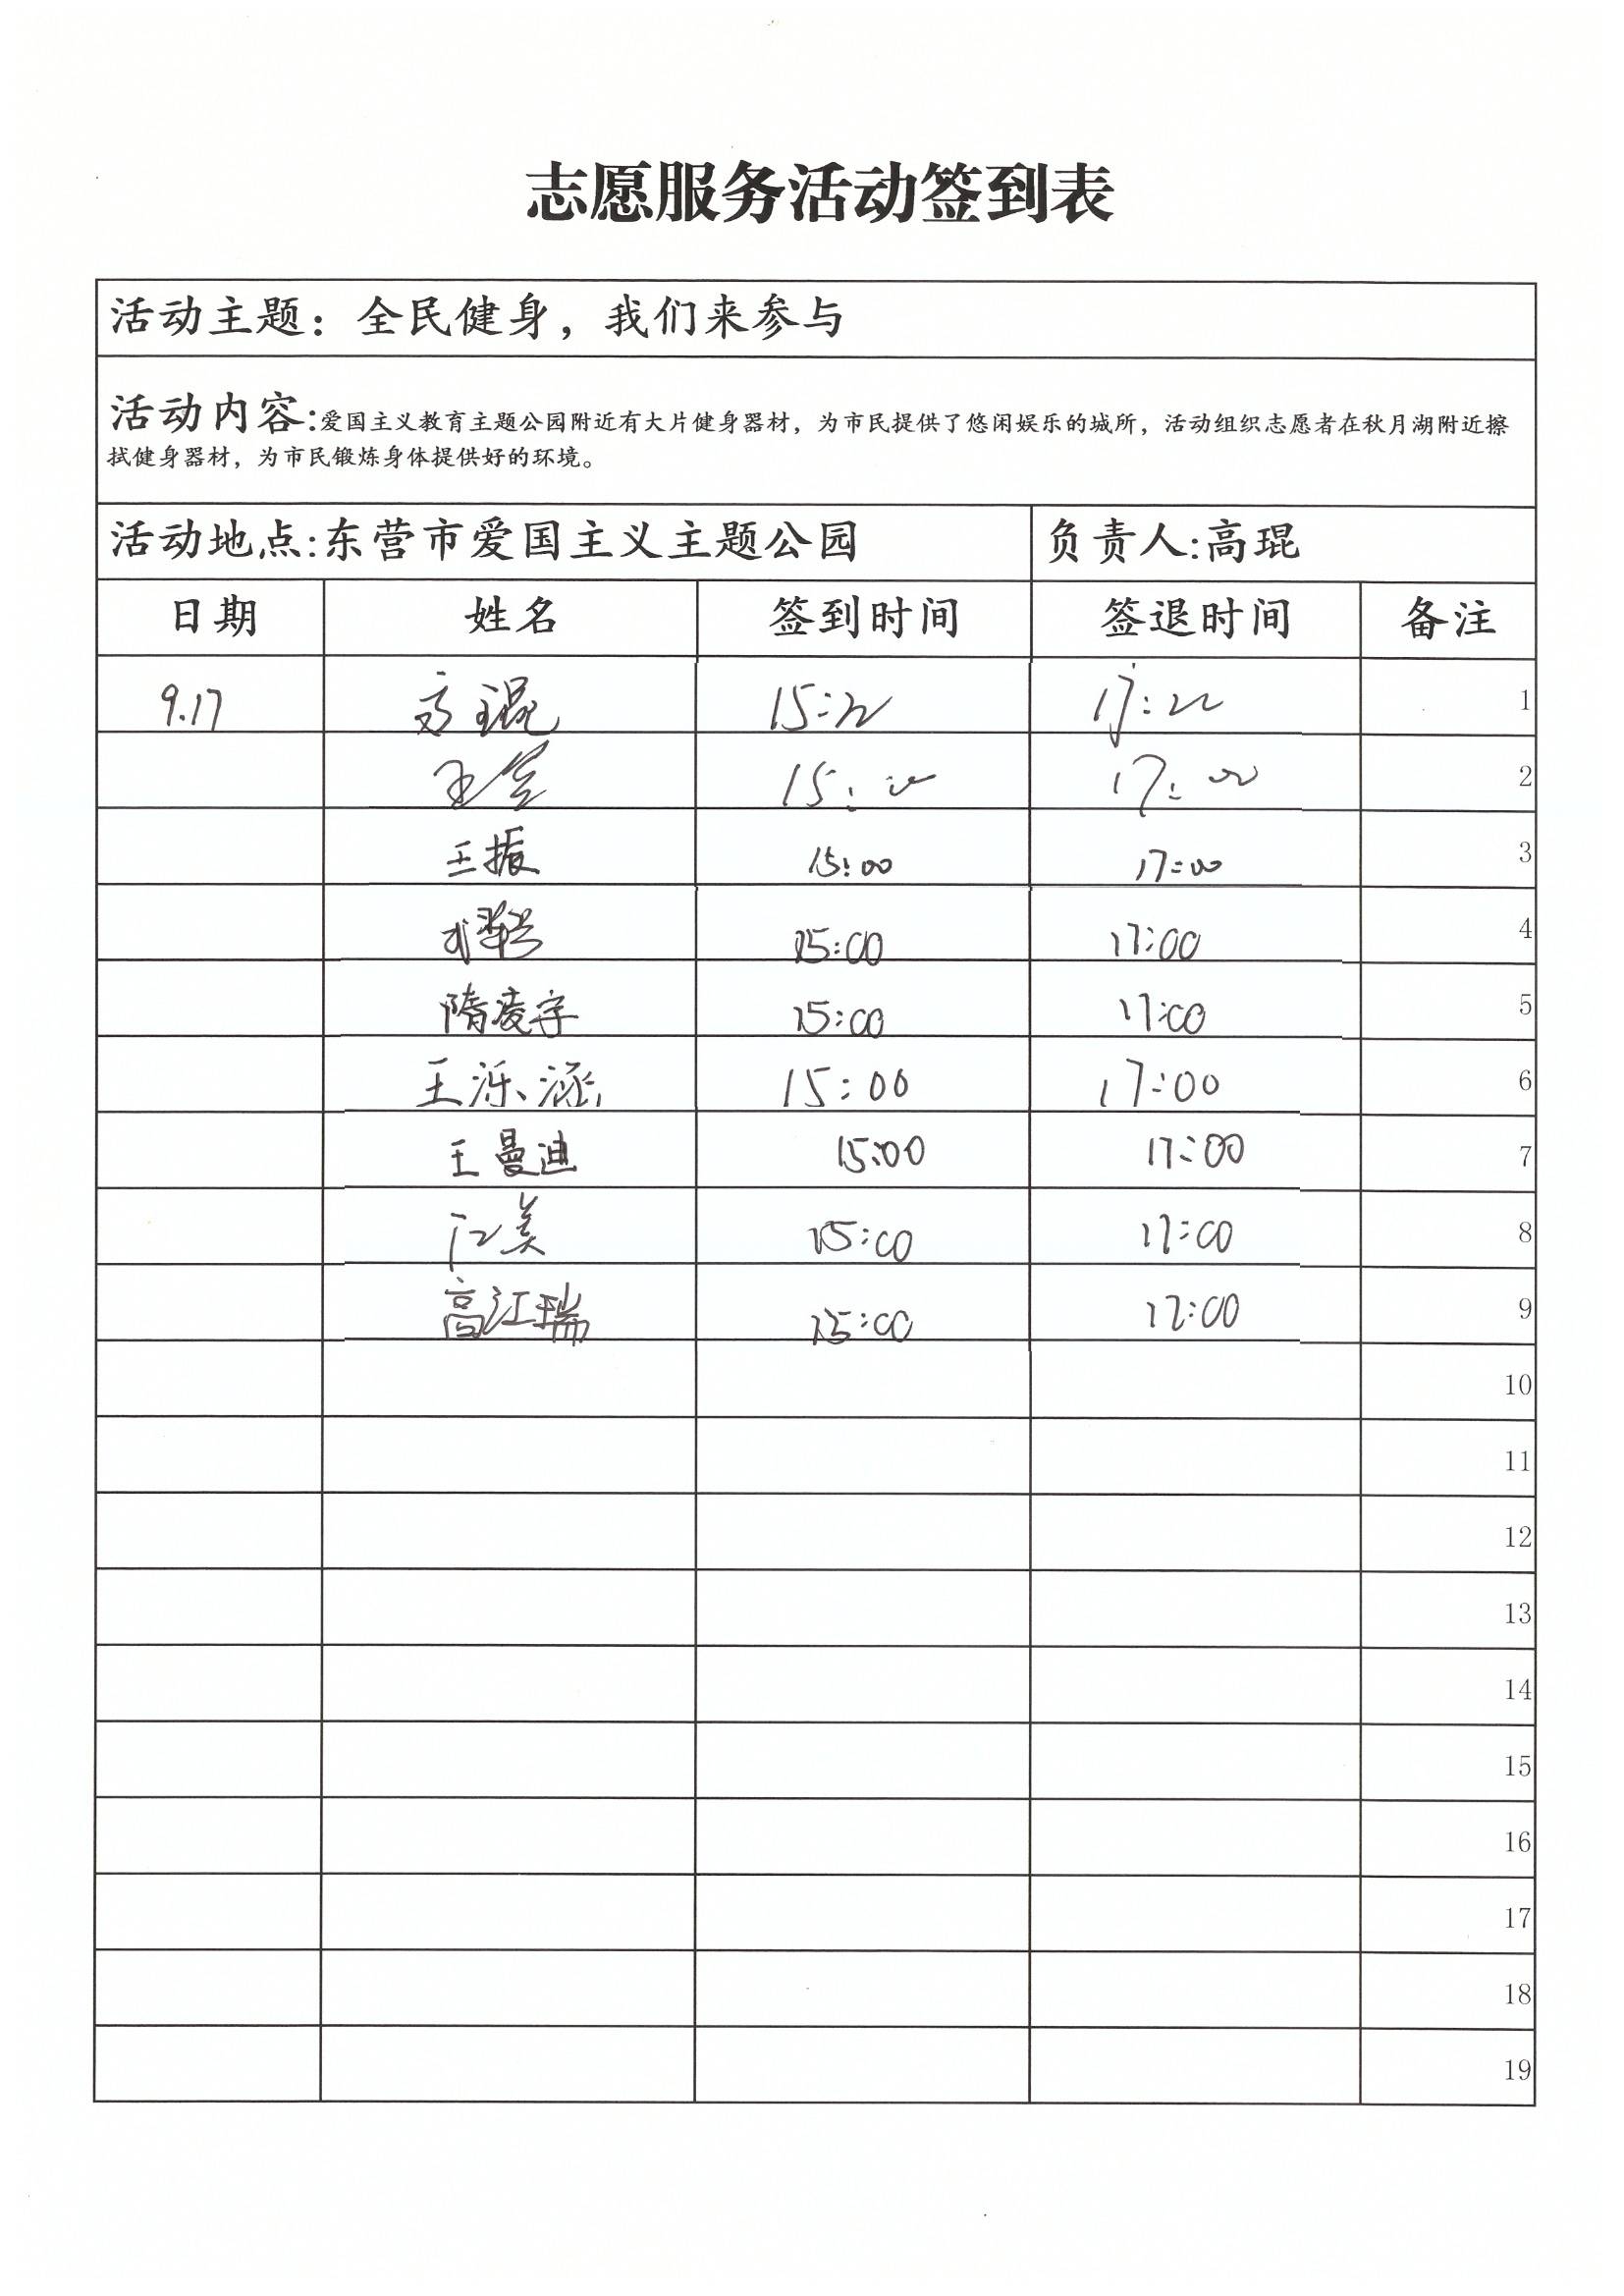 志愿服务活动签到表
活动主题：全民健身，我们来参与
活动内容:爱国主义教育主题公园附近有大片健身器材，为市民提供了悠闲娱乐的城所，活动组织志愿者在秋月湖附近擦
拭健身器材，为市民锻炼身体提供好的环境。
活动地点:东营市爱国主义主题公园 负责人:高琨
日期 姓名 签到时间 签退时间 备注
9.17 高琨 1
2
王振 15:00 17:00 3
15:00 17:00 4
隋凌宇 15:00 17:00 5
王泺涵 15:00 17:00 6
王曼迪 15:00 17:00 7
15:00 17:00 8
高江瑞 15:00 17:00 9
10
11
12
13
14
15
16
17
18
19